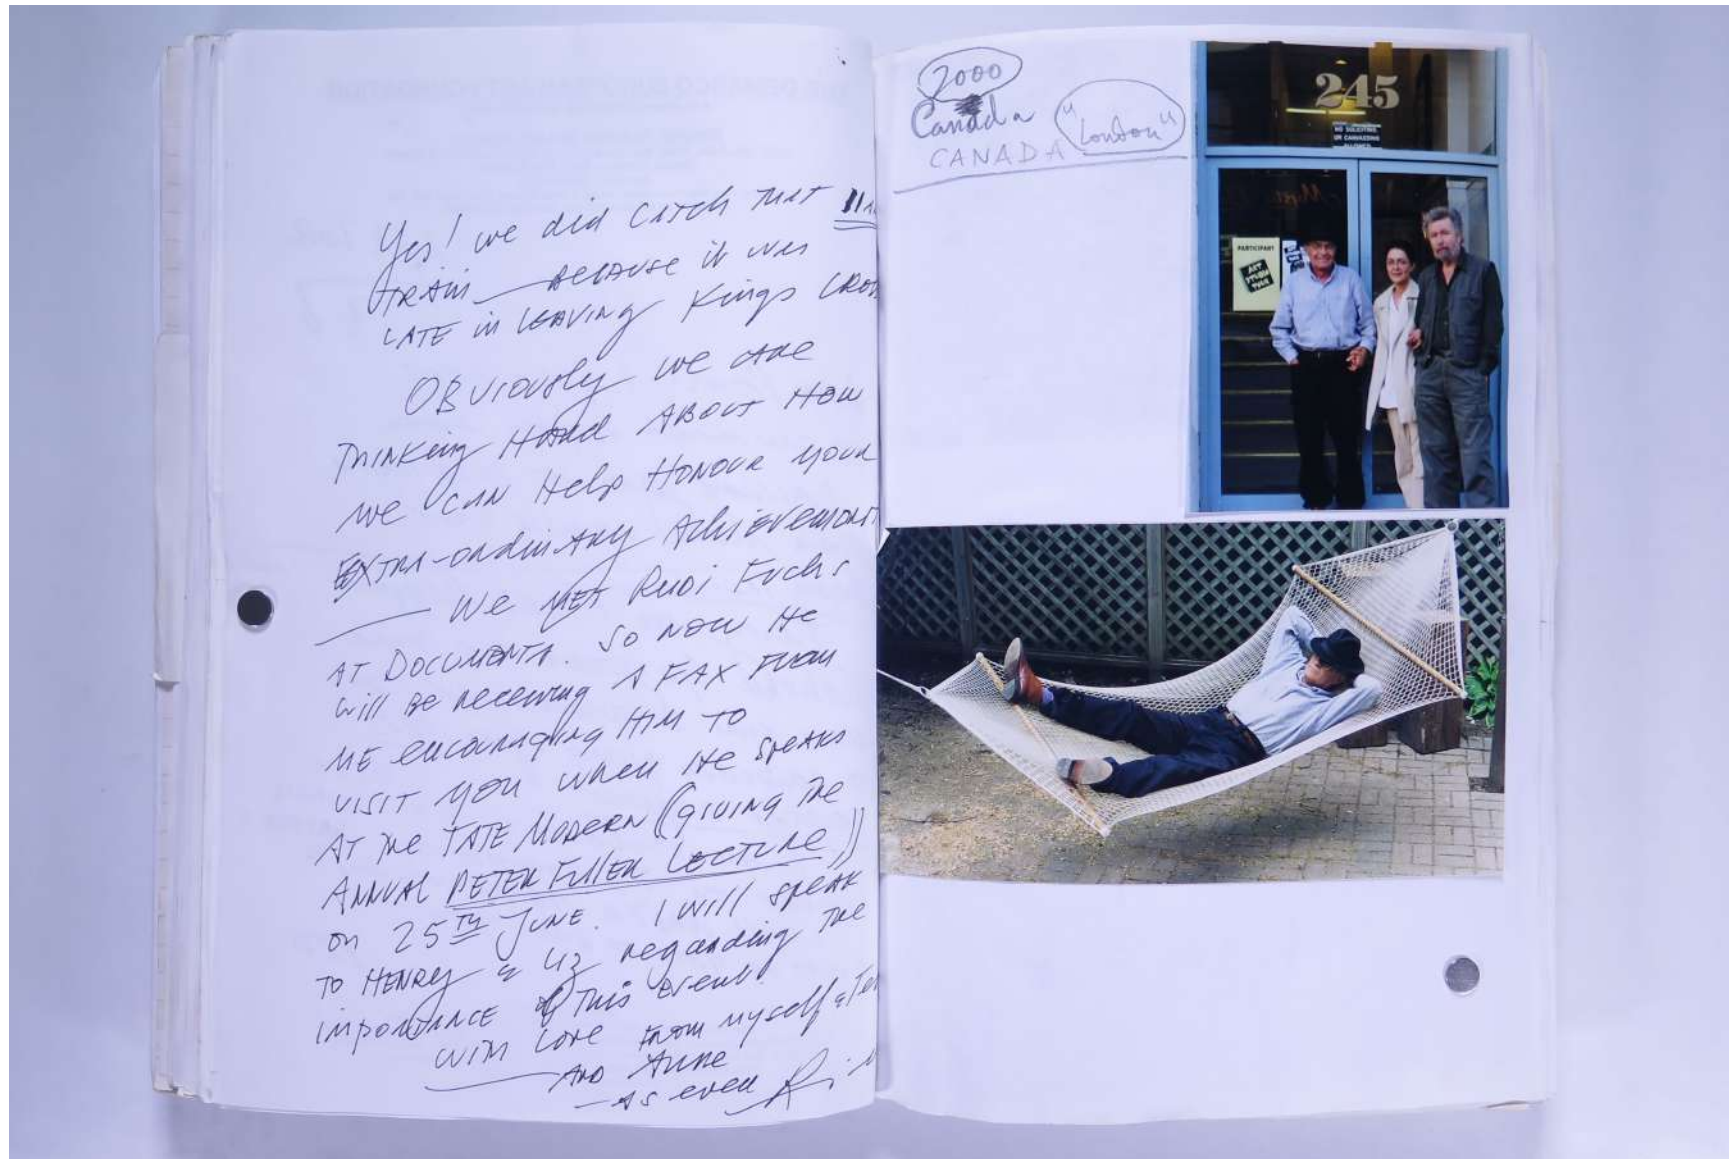 Yes! we did CATCH THAT
TRAIN — BECAUSE it was
LATE in LEAVING Kings CROS
OBVIOUSLY we are
THINKing HARD ABOUT HOW
we CAN Help HONOUR YOUR
EXTRA-ordinARY AchiEVEMENT
— We MET RUDI FUCHS
AT DOCUMENTA. SO NOW HE
will BE receiving A FAX FROM
ME encouraging HIM TO
VISIT YOU when He SPEAKS
AT THE TATE MODERN ((giVING THE
ANNUAL PETER FULLER LECTURE))
on 25TH JUNE. I will SPEAK
TO HENRY & LIZ regarding THE
IMPORTANCE of THIS event.
WITH LOVE FROM myself & Te
— AND ANNE
— AS ever Ri
2000
Canada
"London"
CANADA
245
NO SOLICITING
OR CANVASSING
ALLOWED
PARTICIPANT
ART
STUDIO
TOUR